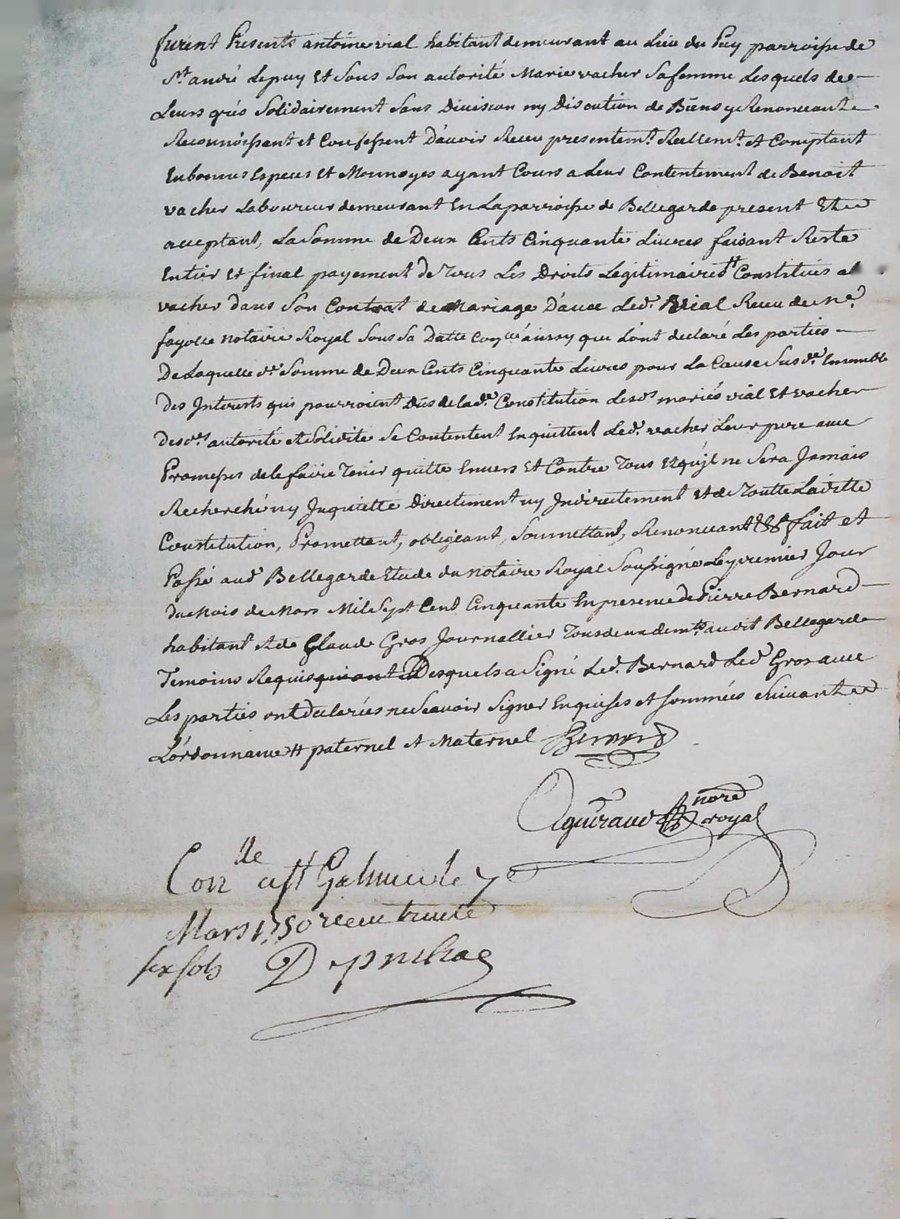 furent Presents antoine vial habitant demeurant au Lieu du Puy parroisse de
St. andré Lepuy Et Sous Son autorité Marie vacher Sa femme Lesquels de
Leurs grés Solidairement Sans Division ny Discution de Biens y Renonceant
Reconnoissant et Confessent D'avoir Receu presentemt. Reellemt. et Comptant
En bonnes Especes Et Monnoyes ayant Cours a Leur Contentement de Benoit
vacher Laboureur demeurant En La parroisse de Bellegarde present Et
acceptant, La Somme de Deux Cents Cinquante Livres faisant Reste
Entier Et final payement de Tous Les Droits Legitimaires # Constitués a
vacher dans Son Contrat de Mariage D'avec Led. Vial Receu de me.
fayolle notaire Royal Sous Sa Datte aussy que Lont declaré Les parties
De Laquelle de. Somme de Deux Cents Cinquante Livres pour La Cause Susde. Ensemble
Des Interests qui pourroient Dus de lade. Constitution Lesds. mariés vial Et vacher
desds. autorité et Solidité Se Contentent En quittent Led. vacher Leur pere avec
Promesses de le faire Tenir quitte Envers Et Contre Tous Et qu'jl ne Sera Jamais
Recherché ny Jnquietté Directement ny Jndirectement Et de Toutte Laditte
Constitution, Promettant, obligeant, Soumettant, Renonceant &&. fait et
Passé aud. Bellegarde Etude du notaire Royal Soussigné Le premier Jour
du Mois de Mars Mil Sept Cent Cinquante En presence de Pierre Bernard
habitant Et de Glaude Gros Journallier Tous deux demts. au dit Bellegarde
Temoins Requis Desquels a Signé Led. Bernard Led. Gros avec
Les parties ont declarées ne Scavoir Signer Enquises et Sommées Suivant
L'ordonnance # paternel et Maternel Bernard
nore royal
Conlle a St Galmier le 7e
Mars 1750 receu trente
six sols